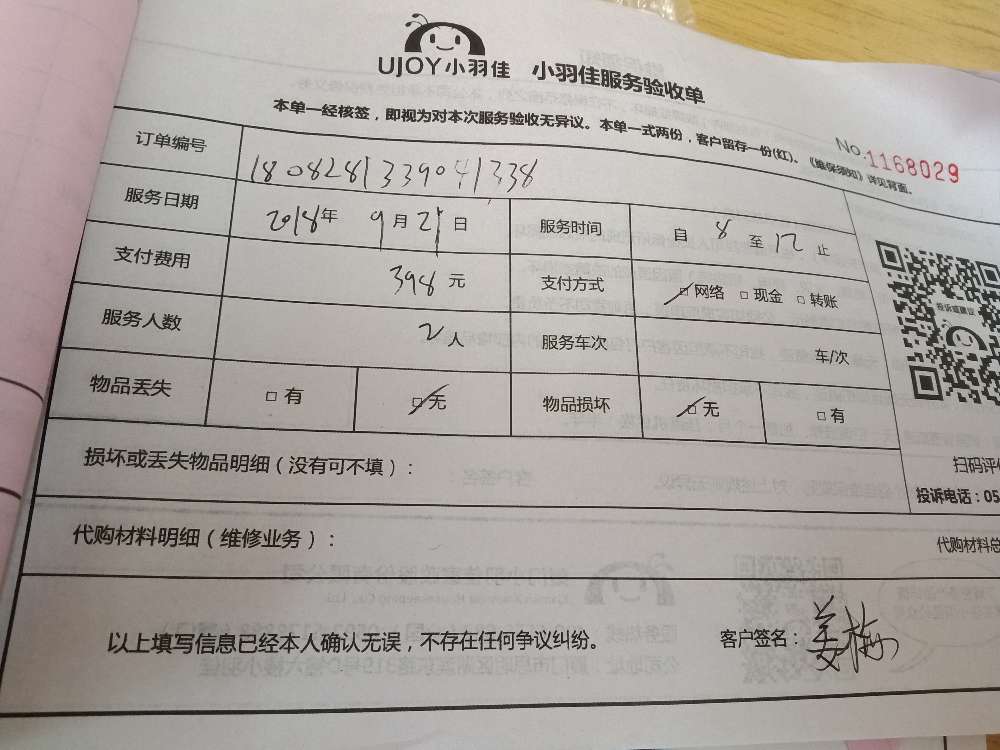 UJOY小羽佳 小羽佳服务验收单
本单一经核签，即视为对本次服务验收无异议。本单一式两份，客户留存一份(红)。《维保须知》详见背面。
No.1168029
订单编号 1808281339041338
服务日期 2018年 9月21日 服务时间 自 8 至 12 止
支付费用 398元 支付方式 □网络 □现金 □转账
服务人数 2人 服务车次 车/次
物品丢失 □有 □无 物品损坏 □无 □有
投诉或建议
损坏或丢失物品明细（没有可不填）：
扫码评价
投诉电话：05
代购材料明细（维修业务）：
代购材料总
以上填写信息已经本人确认无误，不存在任何争议纠纷。
客户签名：姜梅